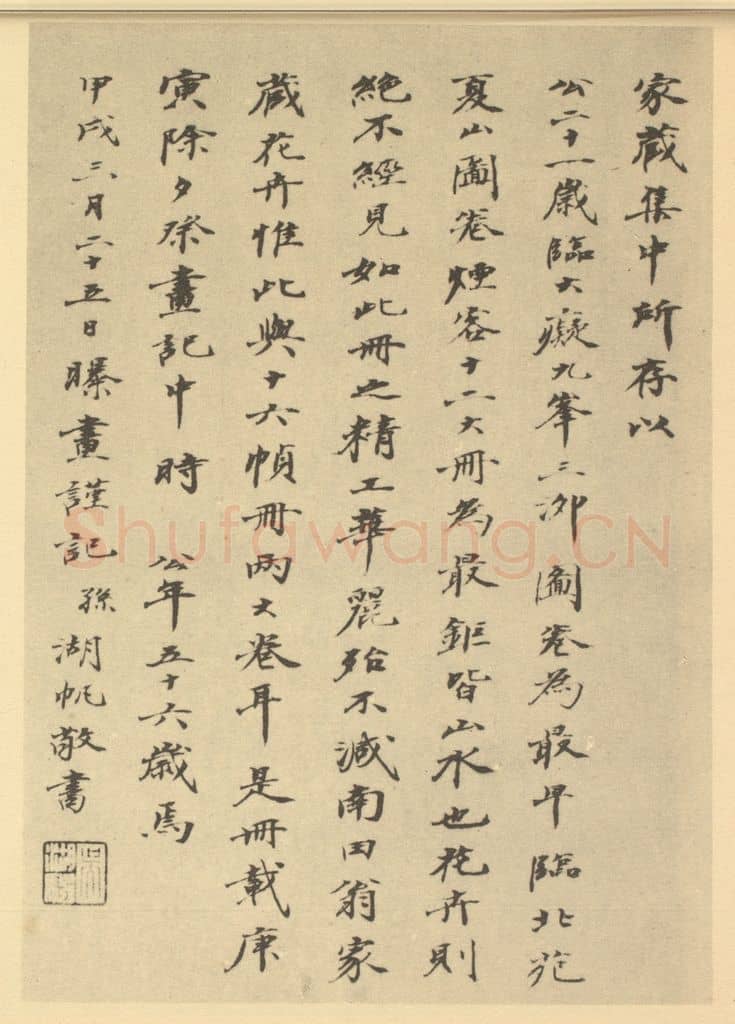 家藏集中所存以
公二十一歲臨大癡九峯三泖圖卷為最早臨北苑
夏山圖卷煙客十二大冊為最鉅皆山水也花卉則
絕不經見如此冊之精工華麗殆不減南田翁家
藏花卉惟此與十六幀冊兩大卷耳是冊載庚
寅除夕祭畫記中時 公年五十六歲焉
甲戌六月二十五日曝畫謹記 孫湖帆敬書
Shufawang.CN